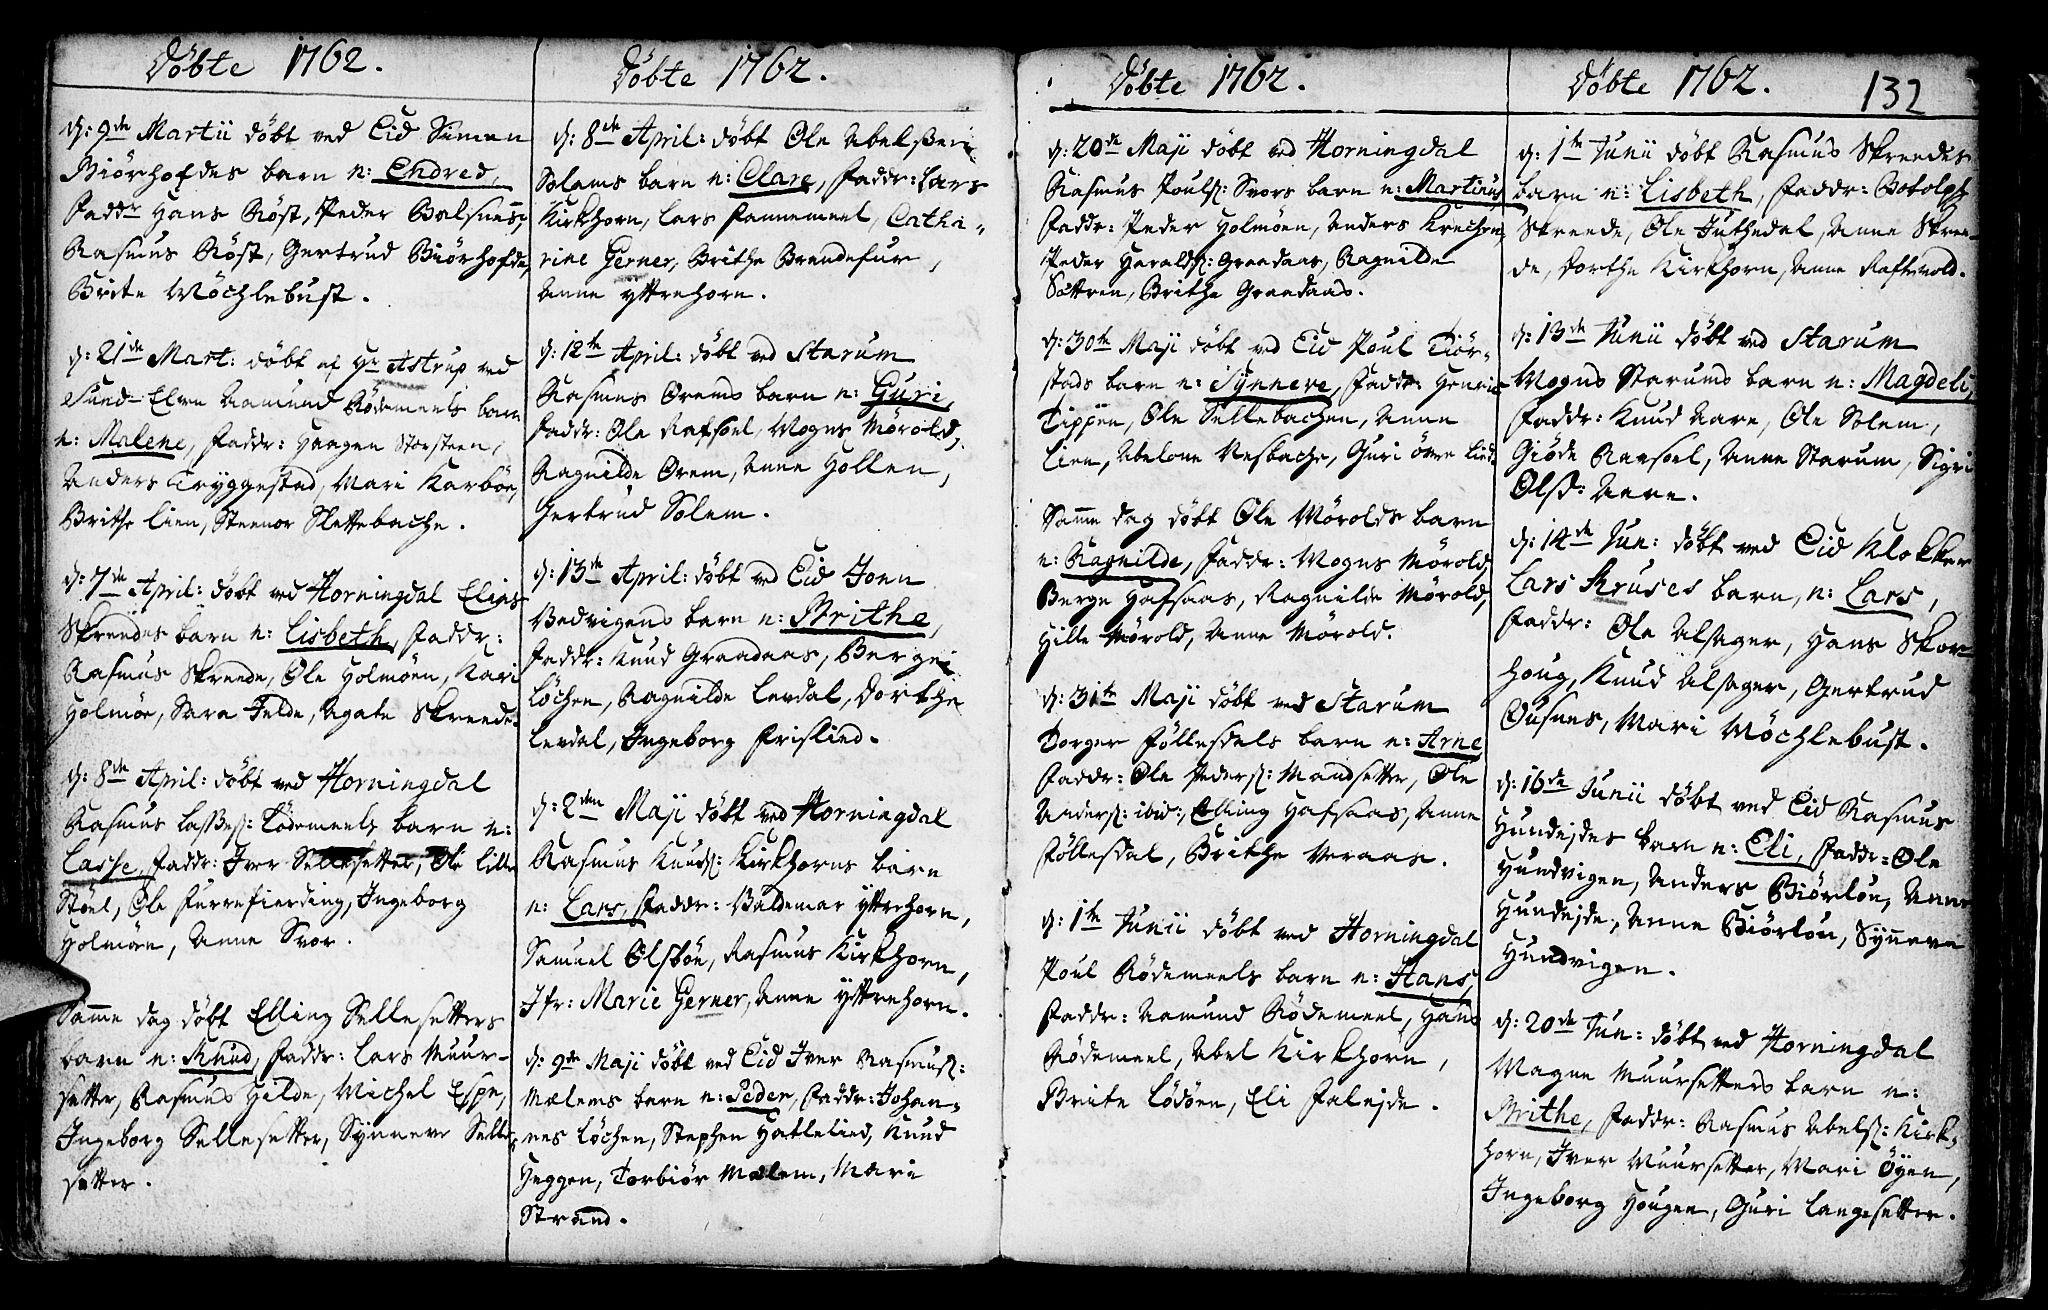 Döbte 1762.
d: 9de Martii döbt ved Eid Simen
Biörhofdes barn n: Endred,
Faddr Hans Röst, Peder Balsnes,
Rasmus Röst, Gertrud Biörhofde,
Brite Möchlebust.
d: 21de Mart: döbt af Hr Astrup ved
Sund-Elven Aamund Rödemeels barn
n: Malene, Faddr: Haagen Storsteen,
Anders Tryggestad, Mari Karböe,
Brithe Lien, Steenor Slettebache.
d: 7de April: döbt ved Horningdal Elias
Skreedes barn n: Lisbeth, Faddr:
Rasmus Skreede, Ole Holmöen, Kari
Holmöe, Sara Jelde, Agate Skreede.
d: 8de April: döbt ved Horningdal
Rasmus Lasses: Lödemeels barn n:
Lasse, Faddr: Iver Sellesetter, Ole Lille
Stöel, Ole Furrefierding, Ingeborg
Holmöen, Anne Svor.
Samme dag döbt Elling Sellesetters
barn n: Knud, Faddr: Lars Muur-
setter, Rasmus Hilde, Michel Espe,
Ingeborg Sellesetter, Synneve Selle-
setter.
Döbte 1762.
d: 8de April: döbt Ole Abelsen
Solems barn n: Clare, Faddr: Lars
Kirkhorn, Lars Fannemeel, Catha-
rine Gerner, Brithe Brendefur,
Anne Yttrehorn.
d: 12te April: döbt ved Starum
Rasmus Orems barn n: Guri,
Faddr: Ole Rafsoel, Mogns Mörold,
Ragnilde Orem, Anne Hollen,
Gertrud Solem.
d: 13de April: döbt ved Eid Jonn
Vedvigens barn n: Brithe,
Faddr: Knud Graadaas, Berge
Löchen, Ragnilde Levdal, Dorthe
Levdal, Ingeborg Frislied.
d: 2den Maji döbt ved Horningdal
Rasmus Knuds: Kirkhorns barn
n: Lars, Faddr: Valdemar Yttrehorn,
Samuel Olsböe, Rasmus Kirkhorn,
Jfr: Marie Gerner, Anne Yttrehorn.
d: 9de Maji döbt ved Eid Iver Rasmus:
Mælems barn n: Peder, Faddr: Johan-
nes Löchen, Stephen Hattelied, Knud
Heggen, Torbiör Mælem, Mari
Strand.
Döbte 1762.
d: 20de Maji döbt ved Horningdal
Rasmus Pouls: Svors barn n: Martinus
Faddr: Peder Holmöen, Anders Krechen,
Peder Haralds: Graadaas, Ragnilde
Sættren, Brithe Graadaas.
d: 30te Maji döbt ved Eid Poul Tiör-
stads barn n: Synneve, Faddr: Henric
Tippen, Ole Sellebachen, Anne
Lien, Abelone Nesbache, Guri övre Lied.
Samme dag döbt Ole Mörolds barn
n: Ragnilde, Faddr: Mogns Mörold,
Berge Hafsaas, Ragnilde Mörold,
Hille Mörold, Anne Mörold.
d: 31te Maji döbt ved Starum
Torger Föllesdals barn n: Arne
Faddr: Ole Peders: Mandsetter, Ole
Anders: ibid:, Elling Hafsaas, Anne
Föllesdal, Brithe Veraas.
d: 1te Junii döbt ved Horningdal
Poul Rödemeels barn n: Hans,
Faddr: Aamund Rödemeel, Hans
Rödemeel, Abel Kirkhorn,
Brite Lödöen, Eli Falejde.
Döbte 1762.
132
d: 1te Junii döbt Rasmus Skreedes
barn n: Lisbeth, Faddr: Botolph
Skreede, Ole Juthedal, Anne Skree-
de, Dorthe Kirkhorn, Anne Raftevold.
d: 13de Junii döbt ved Starum
Mogns Starums barn n: Magdeli,
Faddr: Knud Aare, Ole Solem,
Giöde Raafsoel, Anne Starum, Sigri
Olsd: Aare.
d: 14de Jun: döbt ved Eid Klokker
Lars Kruses barn, n: Lars,
Faddr: Ole Alsager, Hans Skor-
houg, Knud Alsager, Gertrud
Ousnes, Mari Möchlebust.
d: 16de Junii döbt ved Eid Rasmus
Hundejdes barn n: Eli, Faddr: Ole
Hundvigen, Anders Biörlou, Anne
Hundejde, Anne Biörlou, Synneve
Hundvigen.
d: 20de Jun: döbt ved Horningdal
Magne Muursetters barn n:
Brithe, Faddr: Rasmus Abels: Kirk-
horn, Iver Muursetter, Mari Öyen,
Ingeborg Hougen, Guri Langesetter.